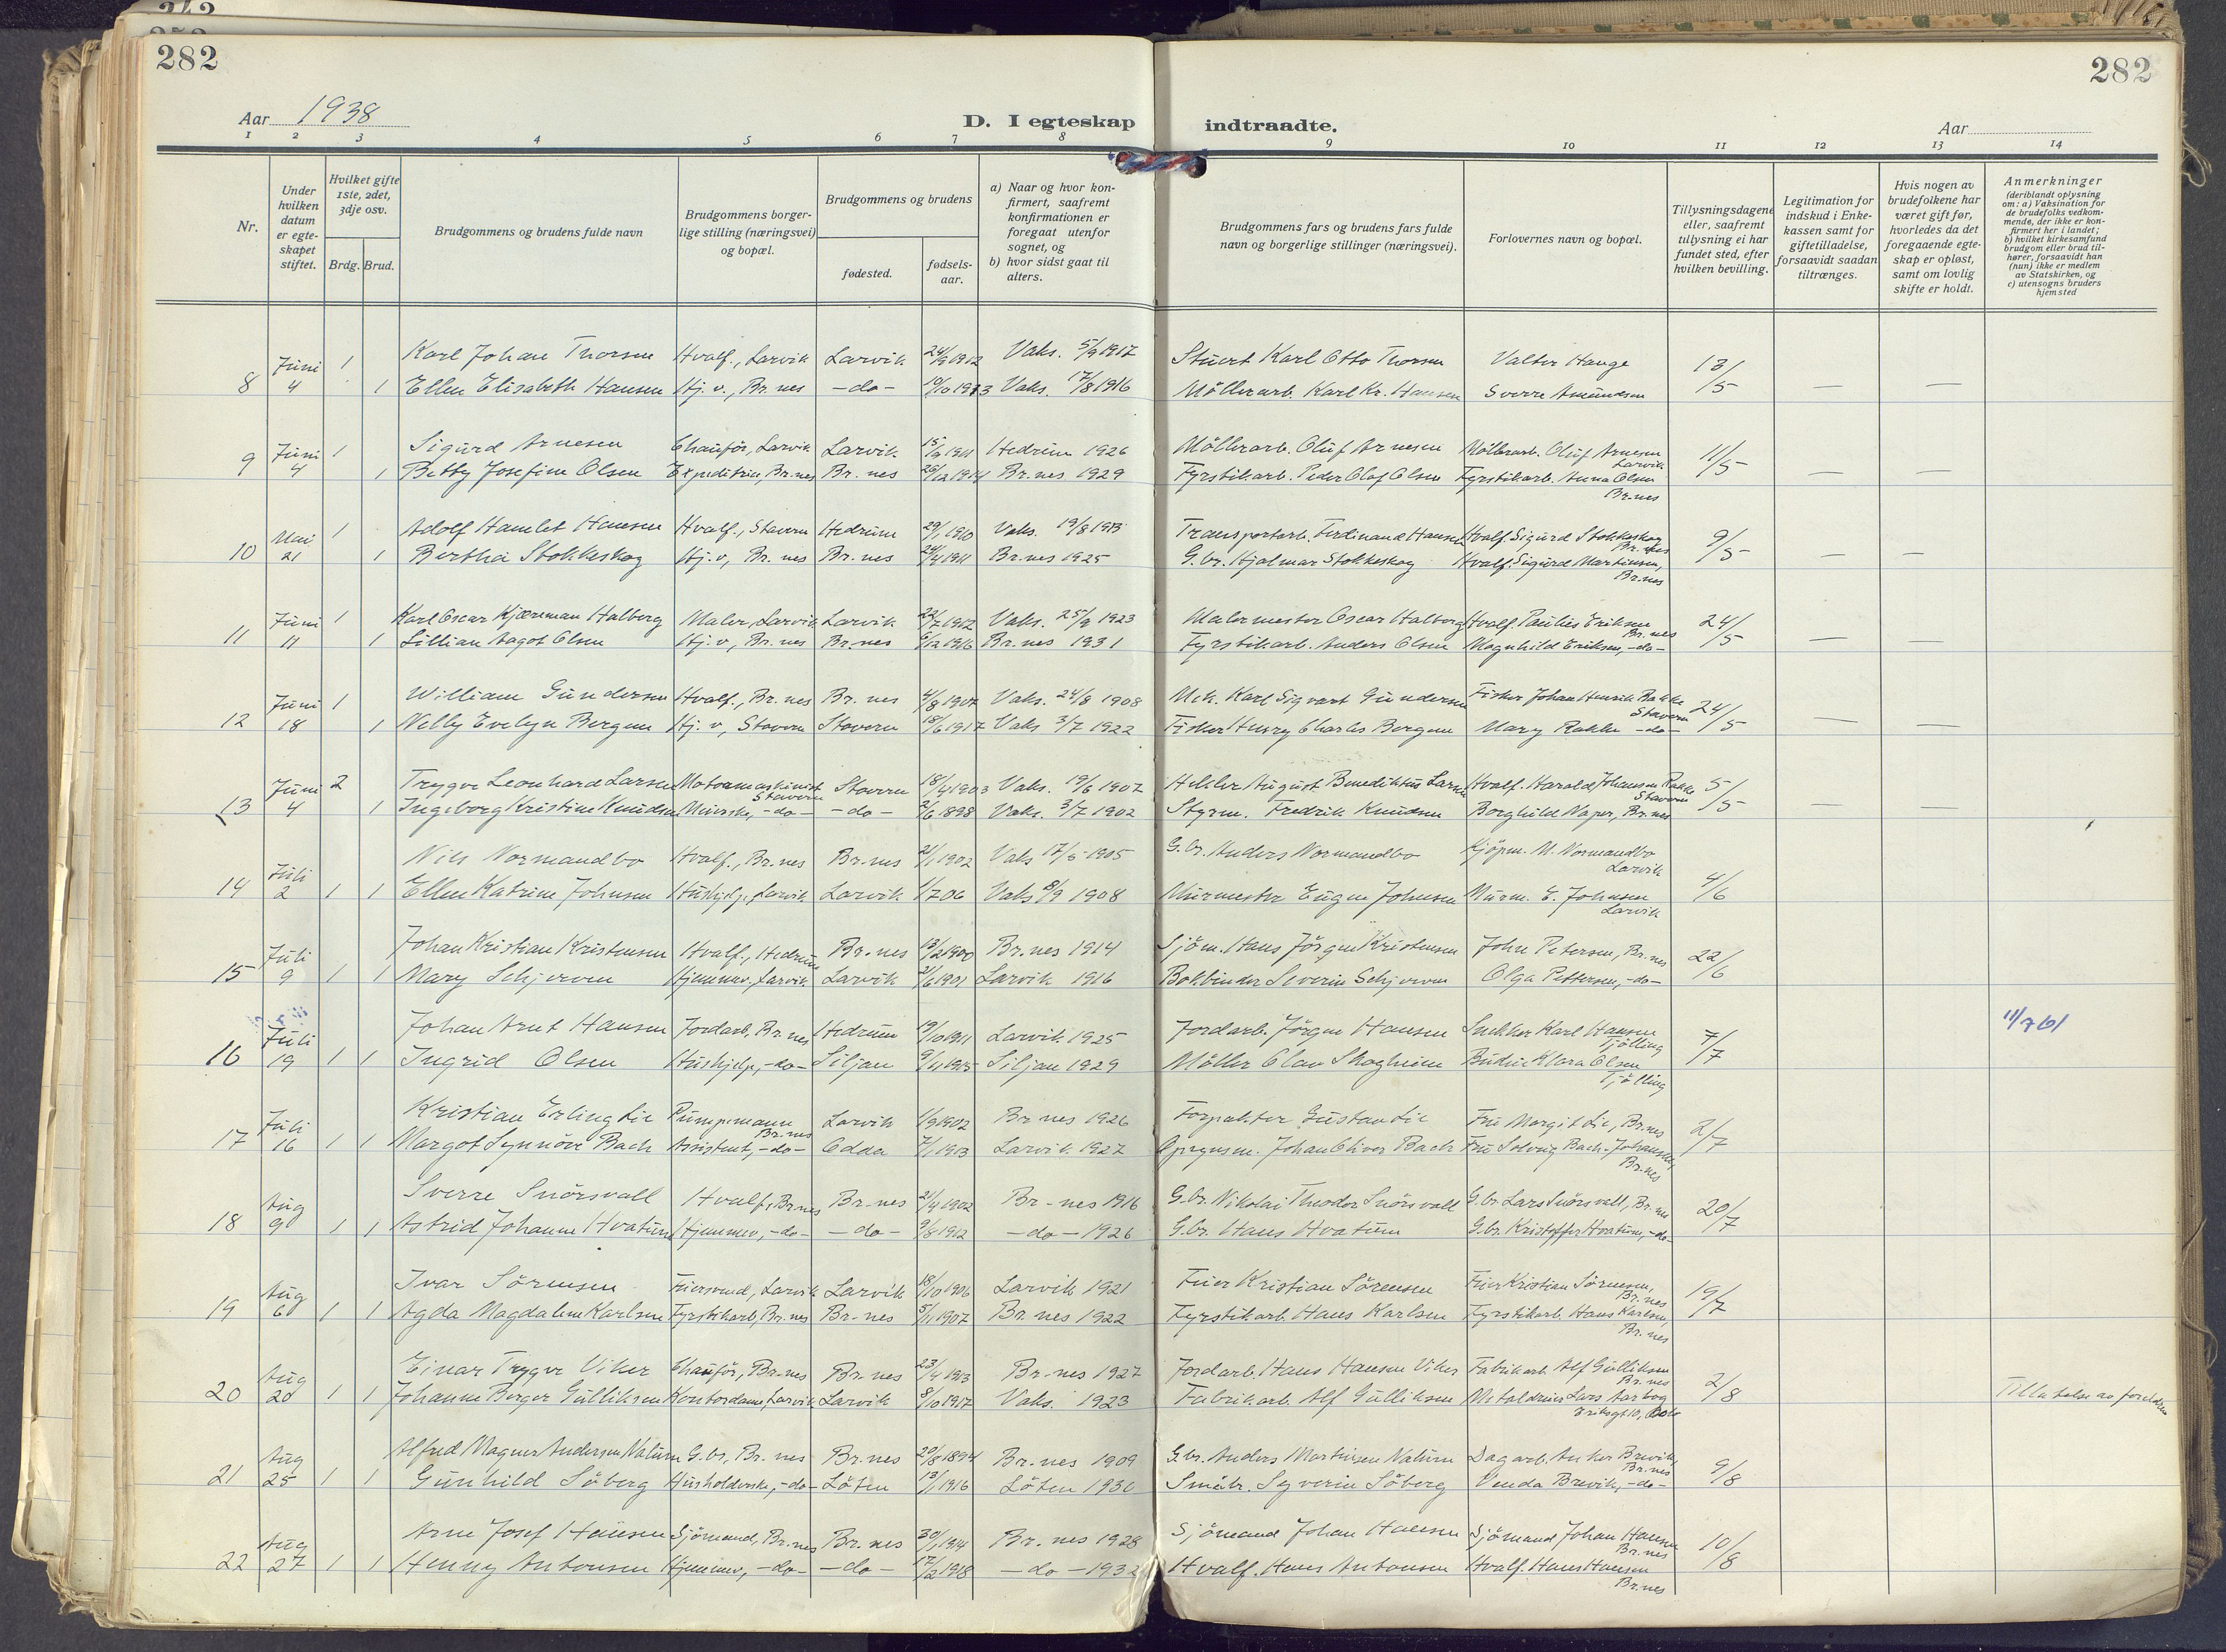 282
282
Aar 1938
D. I egteskap indtraadte.
Aar
1 2 3 4 5 6 7 8 9 10 11 12 13 14
Nr.
Under hvilken datum er egteskapet stiftet.
Hvilket gifte 1ste, 2det, 3dje osv.
Brdg. Brud.
Brudgommens og brudens fulde navn
Brudgommens borgerlige stilling (næringsvei) og bopæl.
Brudgommens og brudens
fødested.
fødselsaar.
a) Naar og hvor konfirmert, saafremt konfirmationen er foregaat utenfor sognet, og
b) hvor sidst gaat til alters.
Brudgommens fars og brudens fars fulde navn og borgerlige stillinger (næringsvei).
Forlovernes navn og bopæl.
Tillysningsdagene eller, saafremt tillysning ei har fundet sted, efter hvilken bevilling.
Legitimation for indskud i Enkekassen samt for giftetilladelse, forsaavidt saadan tiltrænges.
Hvis nogen av brudefolkene har været gift før, hvorledes da det foregaaende egteskap er opløst, samt om lovlig skifte er holdt.
Anmerkninger
(deriblandt oplysning om: a) Vaksination for de brudefolks vedkommende, der ikke er konfirmert her i landet; b) hvilket kirkesamfund brudgom eller brud tilhører, forsaavidt han (hun) ikke er medlem av Statskirken, og c) utensogns bruders hjemsted
8 Juni 4 1 Karl Johan Thorsen Hvalf., Larvik Larvik 24/9 1912 Vaks. 5/9 1917 Stuert Karl Otto Thorsen Valter Hauge 13/5
1 Ellen Elisabeth Hansen Hj. v., Br. nes -do- 19/10 1913 Vaks. 17/8 1916 Möllerarb. Karl Kr. Hansen Sverre Amundsen — —
9 Juni 4 1 Sigurd Arnesen Chauför, Larvik Larvik 1911 Hedrum 1926 Möllerarb. Oluf Arnesen Möllerarb. Oluf Arnesen Larvik 11/5
1 Betty Josefine Olsen Expeditrice, Br. nes Br. nes 26/12 1914 Br. nes 1929 Fyrstikarb. Peder Olaf Olsen Fyrstikarb. Anna Olsen Br. nes — —
10 Mai 21 1 Adolf Hamlet Hansen Hvalf., Stavern Hedrum 29/1 1910 Vaks. 19/8 1913 Transportarb. Ferdinand Hansen Hvalf. Sigurd Stokkeskog Br. nes 9/5
1 Bertha Stokkeskog Hj. v, Br. nes Br. nes 24/4 1911 Br. nes 1925 G. br. Hjalmar Stokkeskog Hvalf. Sigurd Martinsen, Br. nes — —
11 Juni 11 1 Karl Oscar Kjæreman Halborg Maler, Larvik Larvik 22/7 1912 Vaks. 25/9 1923 Malermester Oscar Halborg Hvalf. Paulius Eriksen Br. nes 24/5
1 Lillian Aagot Olsen Hj. v, Br. nes Br. nes 6/12 1916 Br. nes 1931 Fyrstikarb. Anders Olsen Magnhild Eriksen, -do- — —
12 Juni 18 1 William Gundersen Hvalf., Br. nes Br. nes 4/8 1907 Vaks. 24/8 1908 Mek. Karl Sigvart Gundersen Fisker Johan Henrik Rakke Stavern 24/5
1 Nelly Evelyn Bergene Hj. v, Stavern Stavern 18/6 1917 Vaks 3/7 1922 Fisker Henry Charles Bergene Mary Rakke -do- — —
13 Juni 4 2 Trygve Leonhard Larsen Motormaskinist Stavern Stavern 18/4 1903 Vaks. 19/6 1907 August Benediktus Larsen Hvalf. Harald Johansen Rakke Stavern 5/5
1 Ingeborg Kristine Knudsen -do- -do- 2/6 1898 Vaks. 3/7 1902 Styrm. Fredrik Knudsen Borghild Naper, Br. nes — —
14 Juli 2 1 1 Nils Normandbo Hvalf., Br. nes Br. nes 21/1 1902 Vaks 17/5 1905 G. br. Anders Normandbo Kjöpm. M. Normandbo Larvik
Ellen Katrine Johnsen Hushjelp, Larvik Larvik 1/7 06 Vaks 8/9 1908 Murmester Eugen Johnsen Murm. E. Johnsen Larvik 4/6
15 Juli 9 1 1 Johan Kristian Kristensen Hvalf., Hedrum Br. nes 13/2 1900 Br. nes 1914 Sjöm. Hans Jörgen Kristensen John Petersen, Br. nes 22/6
Mary Schjerven Hjemmev. Larvik Larvik 21/6 1901 Larvik 1916 Bokbinder Severin Schjerven Olga Pettersen, -do-
16 Juli 19 1 1 Johan Arnt Hansen Jordarb., Br. nes Hedrum 19/10 1911 Larvik 1925 Jordarb. Jörgen Hansen Snekker Karl Hansen Tjölling 7/7 11/7 61
Ingrid Olsen Hushjelp, -do- Siljan 9/11 1915 Siljan 1929 Möller Olav Skogheim Budeie Klara Olsen Tjölling
17 Juli 16 1 1 Kristian Erling Lie Pumpemann Br. nes Larvik 1/9 1902 Br nes 1926 Forpakter Gustav Lie Fru Margit Lie, Br. nes 2/7
Margot Synnöve Bach Assistent, -do- Odda 7/1 1913 Larvik 1927 Johan Oliver Bach Fru Solveig Bach-Johansen, Br. nes
18 Aug 9 1 1 Sverre Snörsvall Hvalf., Br. nes Br. nes 21/4 1902 Br-nes 1916 G. br. Nikolai Theodor Snörsvall G. br. Lars Snörsvall, Br. nes 20/7
Astrid Johanne Hvatum Hjemmev, -do- -do- 9/8 1912 -do- 1926 G. br. Hans Hvatum G. br. Kristoffer Hvatum, -do-
19 Aug 6 1 1 Ivar Sörensen Feiersvend, Larvik Larvik 18/10 1906 Larvik 1921 Feier Kristian Sörensen Feier Kristian Sörensen, Br. nes 19/7
Agda Magdalene Karlsen Fyrstikarb, Br. nes Br. nes 5/1 1907 Br. nes 1922 Fyrstikarb. Hans Karlsen Fyrstikarb. Hans Karlsen, Br. nes
20 Aug 20 1 1 Einar Trygve Viker Chauför, Br. nes Br. nes 23/4 1913 Br. nes 1927 Jordarb. Hans Hansen Viker Fabrikarb. Alf Gulliksen Br. nes 2/8
Johanne Berger Gulliksen Kontordame, Larvik Larvik 8/10 1917 Vaks. 1923 Fabrikarb. Alf Gulliksen Lars Aarbog Eriksgt 10, Oslo Tillatelse av foreldre
21 Aug 25 1 1 Alfred Magner Andersen Nalum G. br, Br. nes Br. nes 20/8 1894 Br. nes 1909 G. br. Anders Martinsen Nalum Dagarb. Anker Brevik, Br. nes 9/8
Gunhild Söberg Husholderske, -do- Löten 13/1 1916 Löten 1930 Småbr. Syverin Söberg Venda Brevik, -do-
22 Aug 27 1 1 Arne Josef Hansen Sjömand, Br. nes Br. nes 30/1 1914 Br. nes 1928 Sjömand Johan Hansen Sjömand Johan Hansen Br. nes 10/8
Henny Antonsen Hjemmev, -do- -do- 17/2 1918 -do- 1932 Hvalf. Hans Antonsen Hvalf. Hans Hansen Br. nes